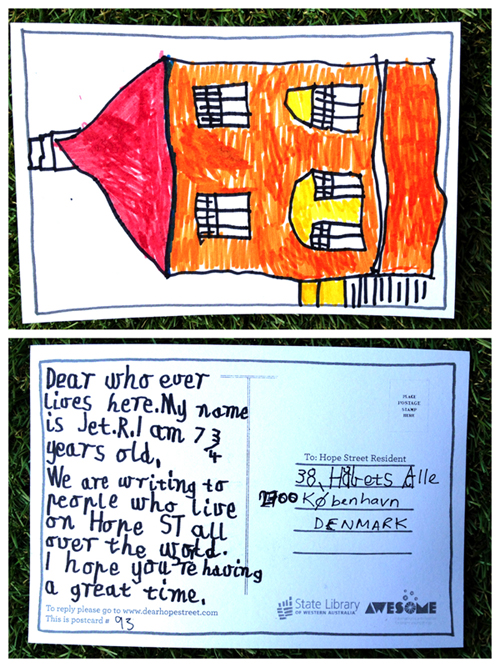 Dear who ever
lives here. My name
is Jet.R. I am 7 3/4
years old.
We are writing to
people who live
on Hope ST all
over the world.
I hope you're having
a great time.
To reply please go to www.dearhopestreet.com
This is postcard # 93
PLACE
POSTAGE
STAMP
HERE
To: Hope Street Resident
38, Håbets Alle
2700 København
DENMARK
State Library
OF WESTERN AUSTRALIA
AWESOME